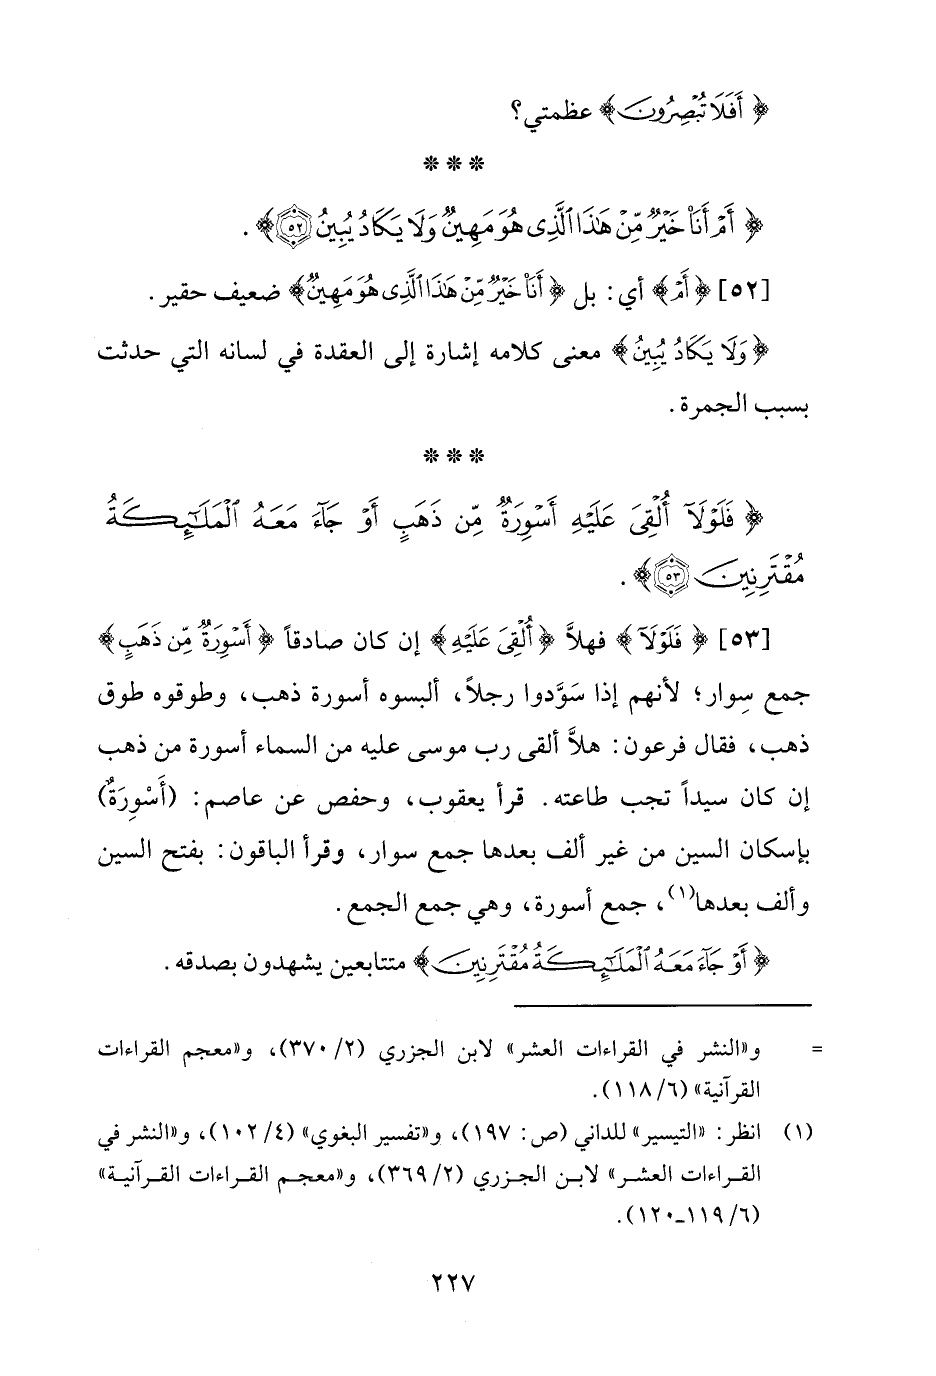 ﴿أَفَلَا تُبْصِرُونَ﴾ عظمتي؟
* * *
﴿أَمْ أَنَا۠ خَيْرٌ مِّنْ هَٰذَا ٱلَّذِى هُوَ مَهِينٌ وَلَا يَكَادُ يُبِينُ ۝٥٢﴾.
[٥٢] ﴿أَمْ﴾ أي: بل ﴿أَنَا۠ خَيْرٌ مِّنْ هَٰذَا ٱلَّذِى هُوَ مَهِينٌ﴾ ضعيف حقير.
﴿وَلَا يَكَادُ يُبِينُ﴾ معنى كلامه إشارة إلى العقدة في لسانه التي حدثت
بسبب الجمرة.
* * *
﴿فَلَوْلَآ أُلْقِىَ عَلَيْهِ أَسْوِرَةٌ مِّن ذَهَبٍ أَوْ جَآءَ مَعَهُ ٱلْمَلَـٰٓئِكَةُ
مُقْتَرِنِينَ ۝٥٣﴾.
[٥٣] ﴿فَلَوْلَآ﴾ فهلاَّ ﴿أُلْقِىَ عَلَيْهِ﴾ إن كان صادقاً ﴿أَسْوِرَةٌ مِّن ذَهَبٍ﴾
جمع سِوار؛ لأنهم إذا سَوَّدوا رجلاً، ألبسوه أسورة ذهب، وطوقوه طوق
ذهب، فقال فرعون: هلاَّ ألقى رب موسى عليه من السماء أسورة من ذهب
إن كان سيداً تجب طاعته. قرأ يعقوب، وحفص عن عاصم: (أَسْوِرَةٌ)
بإسكان السين من غير ألف بعدها جمع سوار، وقرأ الباقون: بفتح السين
وألف بعدها(١)، جمع أسورة، وهي جمع الجمع.
﴿أَوْ جَآءَ مَعَهُ ٱلْمَلَـٰٓئِكَةُ مُقْتَرِنِينَ﴾ متتابعين يشهدون بصدقه.
= و«النشر في القراءات العشر» لابن الجزري (٢/ ٣٧٠)، و«معجم القراءات
القرآنية» (٦/ ١١٨).
(١) انظر: «التيسير» للداني (ص: ١٩٧)، و«تفسير البغوي» (٤/ ١٠٢)، و«النشر في
القراءات العشر» لابن الجزري (٢/ ٣٦٩)، و«معجم القراءات القرآنية»
(٦/ ١١٩-١٢٠).
٢٢٧